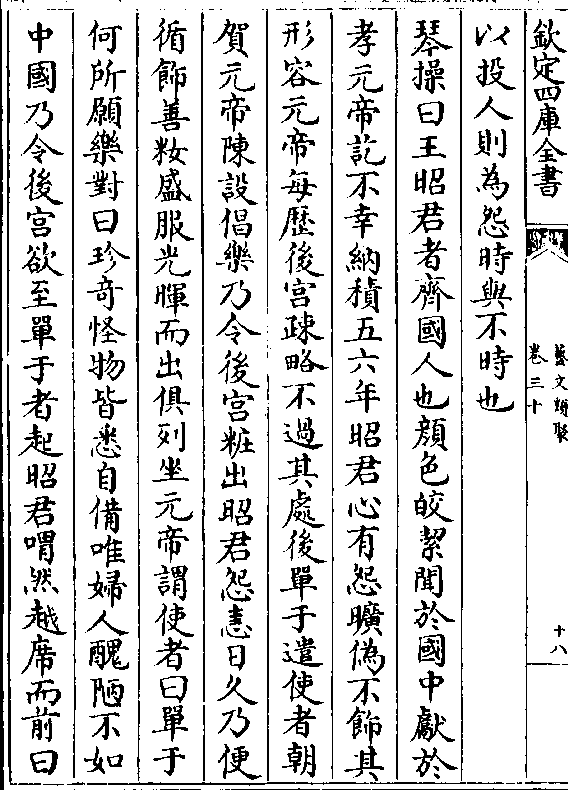 欽定四庫全書
藝文類聚
卷三十
十八
以投人則為怨時與不時也
琴操曰王昭君者齊國人也顏色皎絜聞於國中獻於
孝元帝訖不幸納積五六年昭君心有怨曠偽不飾其
形容元帝每歷後宮疎略不過其處後單于遣使者朝
賀元帝陳設倡樂乃令後宮粧出昭君怨恚日久乃便
循飾善粧盛服光暉而出俱列坐元帝謂使者曰單于
何所願樂對曰珍奇怪物皆悉自備唯婦人醜陋不如
中國乃令後宮欲至單于者起昭君喟然越席而前曰